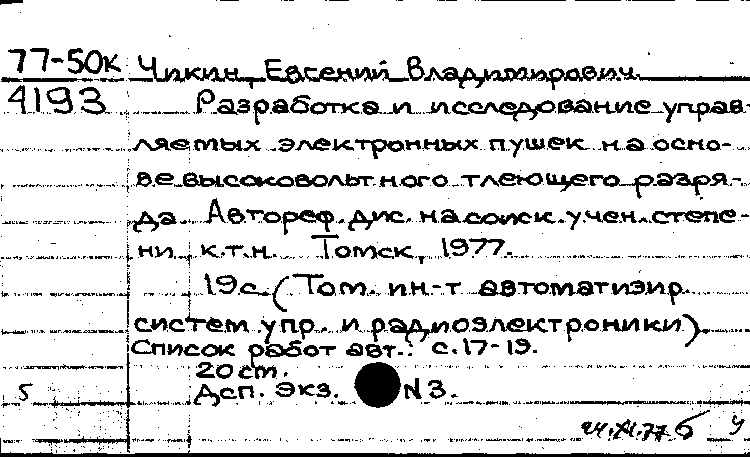 77-50к Чикин, Евгений Владимирович.
4193 Разработка и исследование управ-
ляемых электронных пушек на осно-
ве высоковольтного тлеющего разря-
да. Автореф. дис. на соиск. учен. степе-
ни к.т.н. Томск, 1977.
19с. (Том. ин-т автоматизир.
систем упр. и радиоэлектроники).
Список работ авт.: с. 17-19.
20 см.
5 Дсп. Экз. N3.
24.XI.77 б у